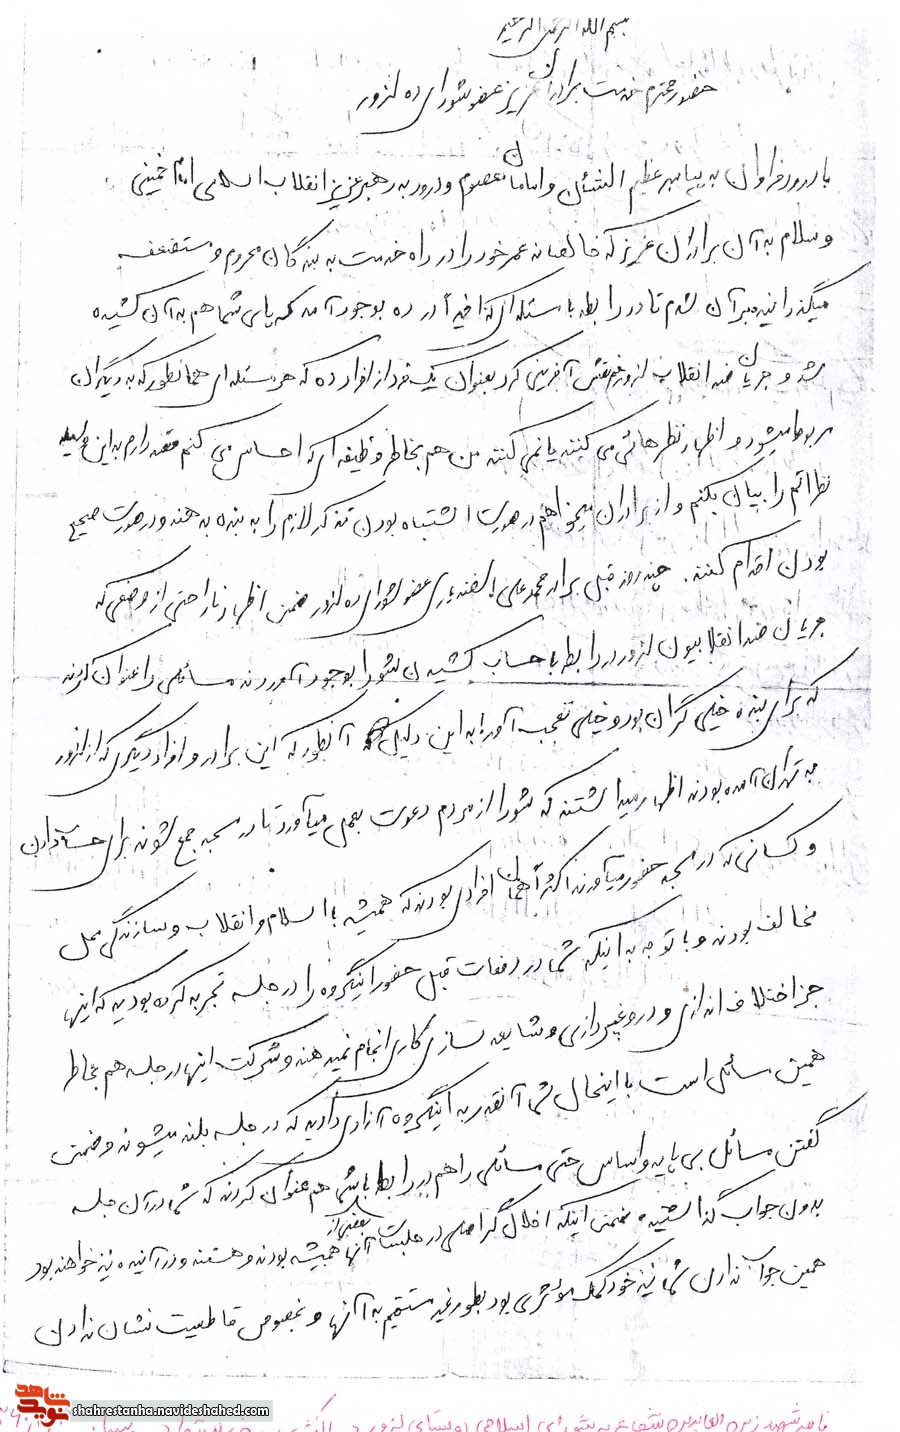 بسم الله الرحمن الرحیم
حضور محترم خدمت برادران عزیز عضو شورای ده لزور
با درود فراوان به پیامبر عظیم الشئن و امامان معصوم و درود به رهبر عزیز انقلاب اسلامی امام خمینی
و سلام به آن برادران عزیز که خالصانه عمر خود را در راه خدمت به بندگان محروم و مستضعف
میگذرانید بر آن شدم تا در رابطه با مسئله ای که اخیراً در ده بوجود آمد که پای شما هم به آن کشیده
شد و جریان ضد انقلاب لزور نقش آفرینی کرد بعنوان یک فرد از افراد ده که هر مسئله ای همانطور که به دیگران
مربوط میشود و اظهار نظر هائی می کنند یا نمی کنند من هم بخاطر وظیفه ای که احساس می کنم قصد دارم به این وسیله
نظراتم را بیان بکنم و از برادران میخواهم در صورت اشتباه بودن تذکر لازم را به بنده بدهند و در صورت صحیح
بودن اقدام کنند. چند روز قبل برادر محمد علی اسفندیاری عضو شورای ده لزور ضمن اظهار ناراحتی از وضعی که
جریان ضد انقلابیون لزور در رابطه با حساب کشیدن شورا بوجود آوردند مسائلی را عنوان کردند
که برای بنده خیلی گران بود و خیلی تعجب آور! به این دلیل که آنطور که این برادر و افراد دیگری که از لزور
به تهران آمده بودند اظهار میداشتند که شورا از مردم دعوت بعمل میآورد تا در مسجد جمع شوند برای حساب دادن
و کسانی که در مسجد حضور میآورند اکثراً همان افرادی بودند که همیشه با اسلام و انقلاب و سازندگی محل
مخالف بودند و با توجه به اینکه شما در دفعات قبل حضور اینگروه را در جلسه تجربه کرده بودید که اینها
جز اختلاف اندازی و دروغپردازی و شایعه سازی کاری انجام نمیدهند و شرکت اینها در جلسه هم بخاطر
همین مسائل است با اینحال شما آنقدر به اینگروه آزادی دادید که در جلسه بلند میشوند و ضمن
گفتن مسائل بی پایه و اساس حتی مسائلی را هم در رابطه با شما هم عنوان کردند که شما در آن جلسه
بدون جواب گذاشتید ضمن اینکه اخلال گر اصلی در جلسات بعضی از آنها همیشه بودند و هستند و در آینده نیز خواهند بود
همین جواب ندادن شما نیز خود کمک مؤثری بود بطور غیر مستقیم به آنها و بخصوص قاطعیت نشان ندادن
شاهد
نوید
shahrestanha.navideshahed.com